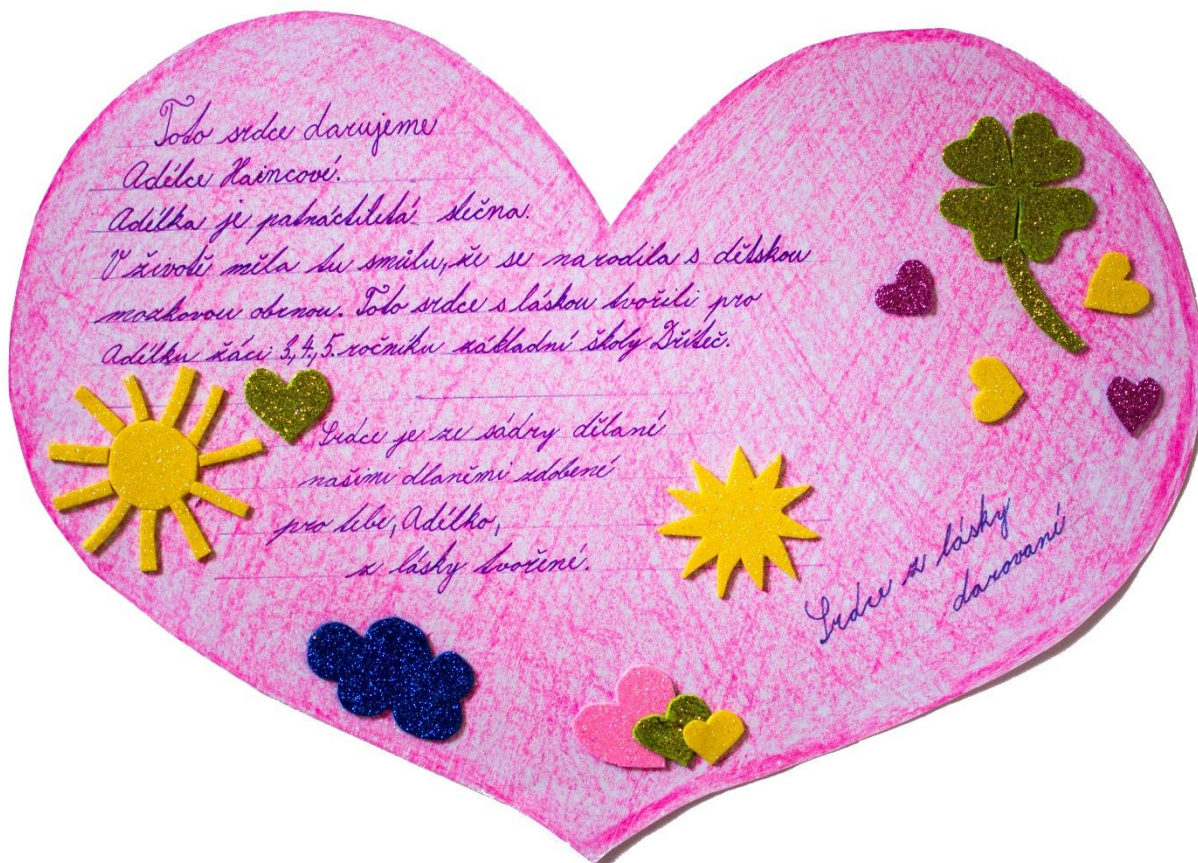 Toto srdce darujeme
Adélce Haincové.
Adélka je patnáctiletá slečna.
V životě měla tu smůlu, že se narodila s dětskou
mozkovou obrnou. Toto srdce s láskou tvořili pro
Adélku žáci 3,4,5. ročníku základní školy Dříteč.
Srdce je ze sádry dělané
našimi dlaněmi zdobené
pro tebe, Adélko,
z lásky tvořené.
Srdce z lásky
darované